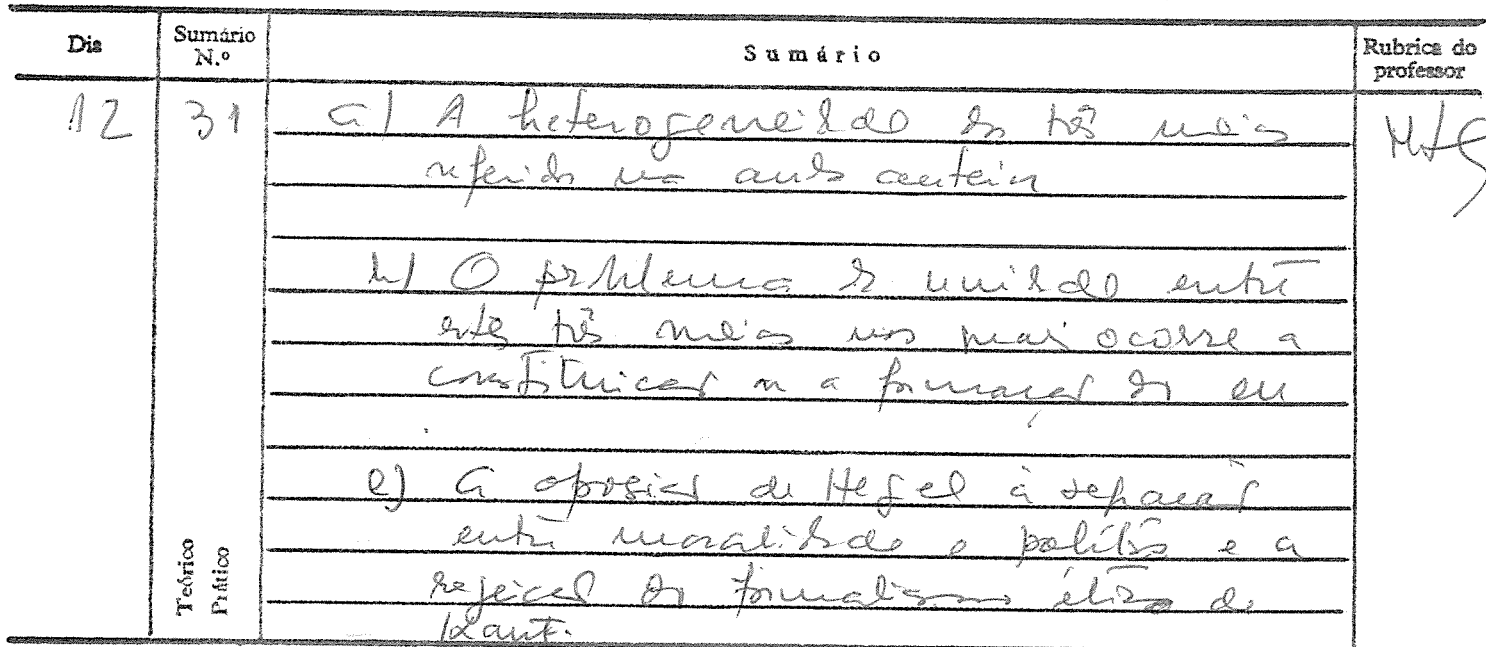 Dia Sumário N.º Sumário Rubrica do professor
12 31 a) A heterogeneidade dos três meios
referidos na aula anterior
b) O problema da unidade entre
estes três meios nos quais ocorre a
constituição ou a formação do eu
c) A oposição de Hegel à separação
entre moralidade e política e a
rejeição do formalismo ético de
Kant.
Teórico
Prático